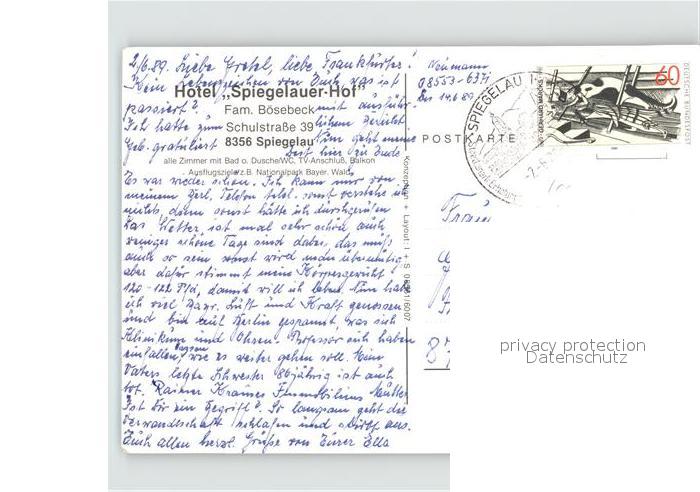 2/6.89. Liebe Gretel, liebe Frankfurter!
Kein Lebenszeichen von Euch was ist
Hotel „Spiegelauer-Hof"
passiert? mit ausführ-
Fam. Bösebeck
Ich hatte zum lichem Bericht
Schulstraße 39
Geb. gratuliert
8356 Spiegelau
Nun geht meine
Zeit hier zu Ende
alle Zimmer mit Bad o. Dusche/WC, TV-Anschluß, Balkon
Ausflugsziele z.B. Nationalpark Bayer. Wald
Es war wieder schön. Ich kann nur von
meinem Telefon sonst verstehe ich
nichts, denn sonst hätte ich durchgerufen
Das Wetter, ist mal sehr schön auch
weniger schöne Tage sind dabei, das muß
auch so sein sonst wird man übermütig
aber dafür stimmt meine Körpergewicht
120-122 Pfd, damit will ich leben. Nun habe
ich viel Bayr. Luft und Kraft genossen
und bin auf Berlin gespannt, was sich
Klinikum und Ohren-Professor auch haben
einfallen lassen, wie es weiter gehen soll. Mein
Vaters letzte Schwester 86jährig ist auch
tot. Rainer Krames Mutter
Ist Dir ein Begriff? So langsam geht die
Verwandtschaft schlafen und stirbt aus.
Euch allen herzl. Grüße von Eurer Ella
Neumann
08553-6371
bis 14.6.89
POSTKARTE
SPIEGELAU 1
60
DEUTSCHE BUNDESPOST
GERHARD MARCKS
Konzeption + Layout: I + S
Frau
8
privacy protection
Datenschutz